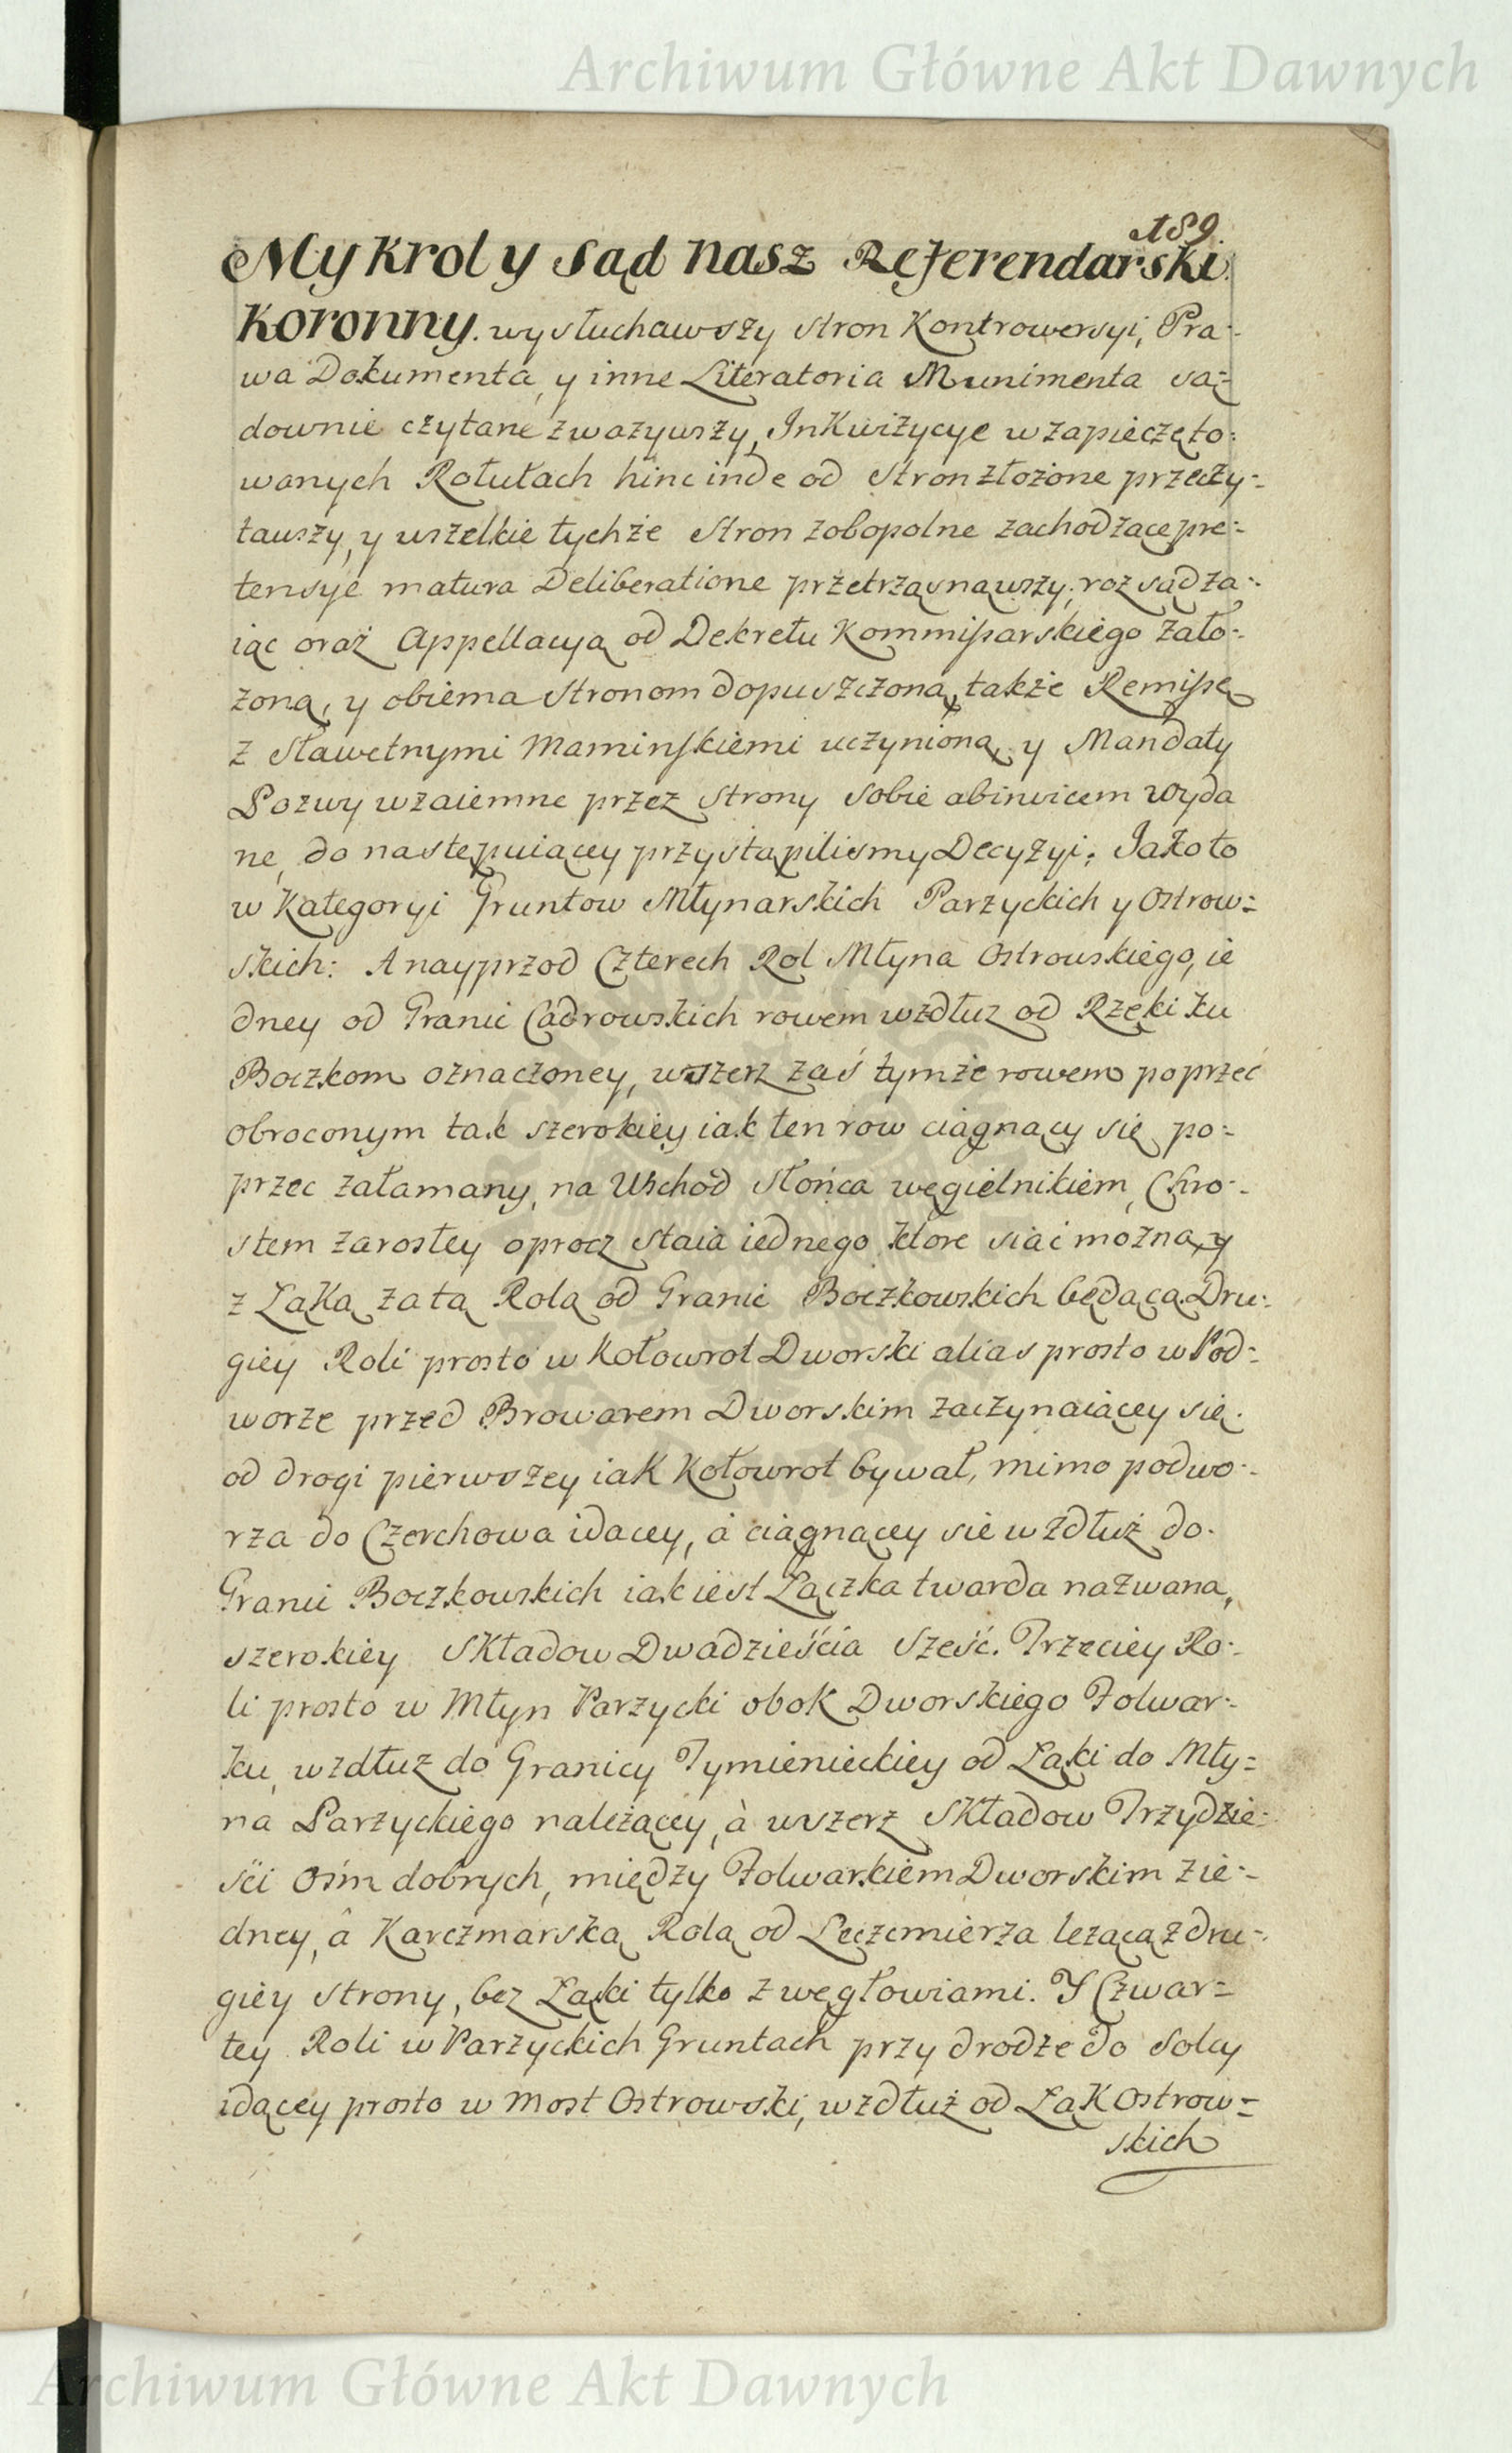 Archiwum Główne Akt Dawnych
189.
My Krol y Sąd nasz Referendarski
Koronny. wysłuchawszy stron Kontrowersyi, Pra-
wa Dokumenta, y inne Literatoria Munimenta są-
downie czytane zwazywszy, Inkwizycye w zapieczęto-
wanych Rotułach hinc inde od stron złożone przeczy-
tawszy, y wszelkie tychże stron zobopolne zachodzące pre-
tensye matura Deliberatione przetrząsnąwszy, rozsądza-
iąc oraz Appellacyą od Dekretu Kommissarskiego zało-
żoną, y obiema stronom dopuszczoną, także Remissę
z Sławetnymi Maminskiemi uczynioną, y Mandaty
Pozwy wzaiemne przez strony sobie abinvicem wyda
ne, do następuiącey przystąpilismy Decyzyi. Jako to
w Kategoryi Gruntow Młynarskich Parzyckich y Ostrow-
skich: A nayprzod Czterech Rol Młyna Ostrowskiego, ie
dney od Granic Cadrowskich rowem wzdłuz od Rzeki ku
Boczkom oznaczoney, wszerz zaś tymże rowem poprzec
obroconym tak szerokiey iak ten row ciągnący się po-
przec załamany, na Wschod słońca węgielnikiem, Chro-
stem zarosłey oprocz staia iednego ktore siac można, y
z Łąką za tą Rolą od Granic Boczkowskich będącą. Dru-
giey Roli prosto w Kołowrot Dworski alias prosto w Pod-
worze przed Browarem Dworskim zaczynaiącey się
od drogi pierwszey iak Kołowrot bywał, mimo podwo-
rza do Czerchowa idącey, à ciągnącey się wzdłuż do
Granic Boczkowskich iak iest Łączka twarda nazwana,
szerokiey Składow Dwadzieścia Sześć. Trzeciey Ro-
li prosto w Młyn Parzycki obok Dworskiego Folwar-
ku, wzdłuz do Granicy Tymienieckiey od Łąki do Mły-
na Parzyckiego należącey, à wszerz Składow Trzydzie-
ści Ośm dobrych, między Folwarkiem Dworskim z ie-
dney, â Karczmarską Rolą od Leczmierza leżącą z dru-
giey strony, bez Łąki tylko z węgłowiami. Y Czwar-
tey Roli w Parzyckich Gruntach przy drodze do Solcy
idącey prosto w Most Ostrowski, wzdłuż od Łąk Ostrow-
skich
Archiwum Główne Akt Dawnych